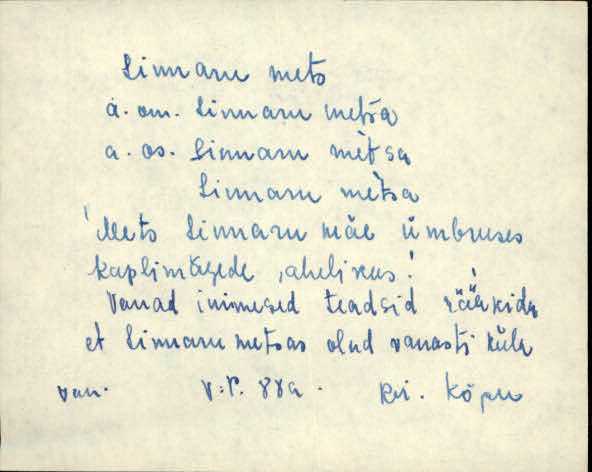 Linnaru mets
a. om. Linnaru metsa
a. os. Linnaru mètsa
Linnaru mètsa
Mets Linnaru mäe ümbruses
kaplimägede ahelikus.
Vanad inimesed teadsid rääkida
et Linnaru metsas olnd vanasti küla
van. V.P. 88a. Kri. Kõpu